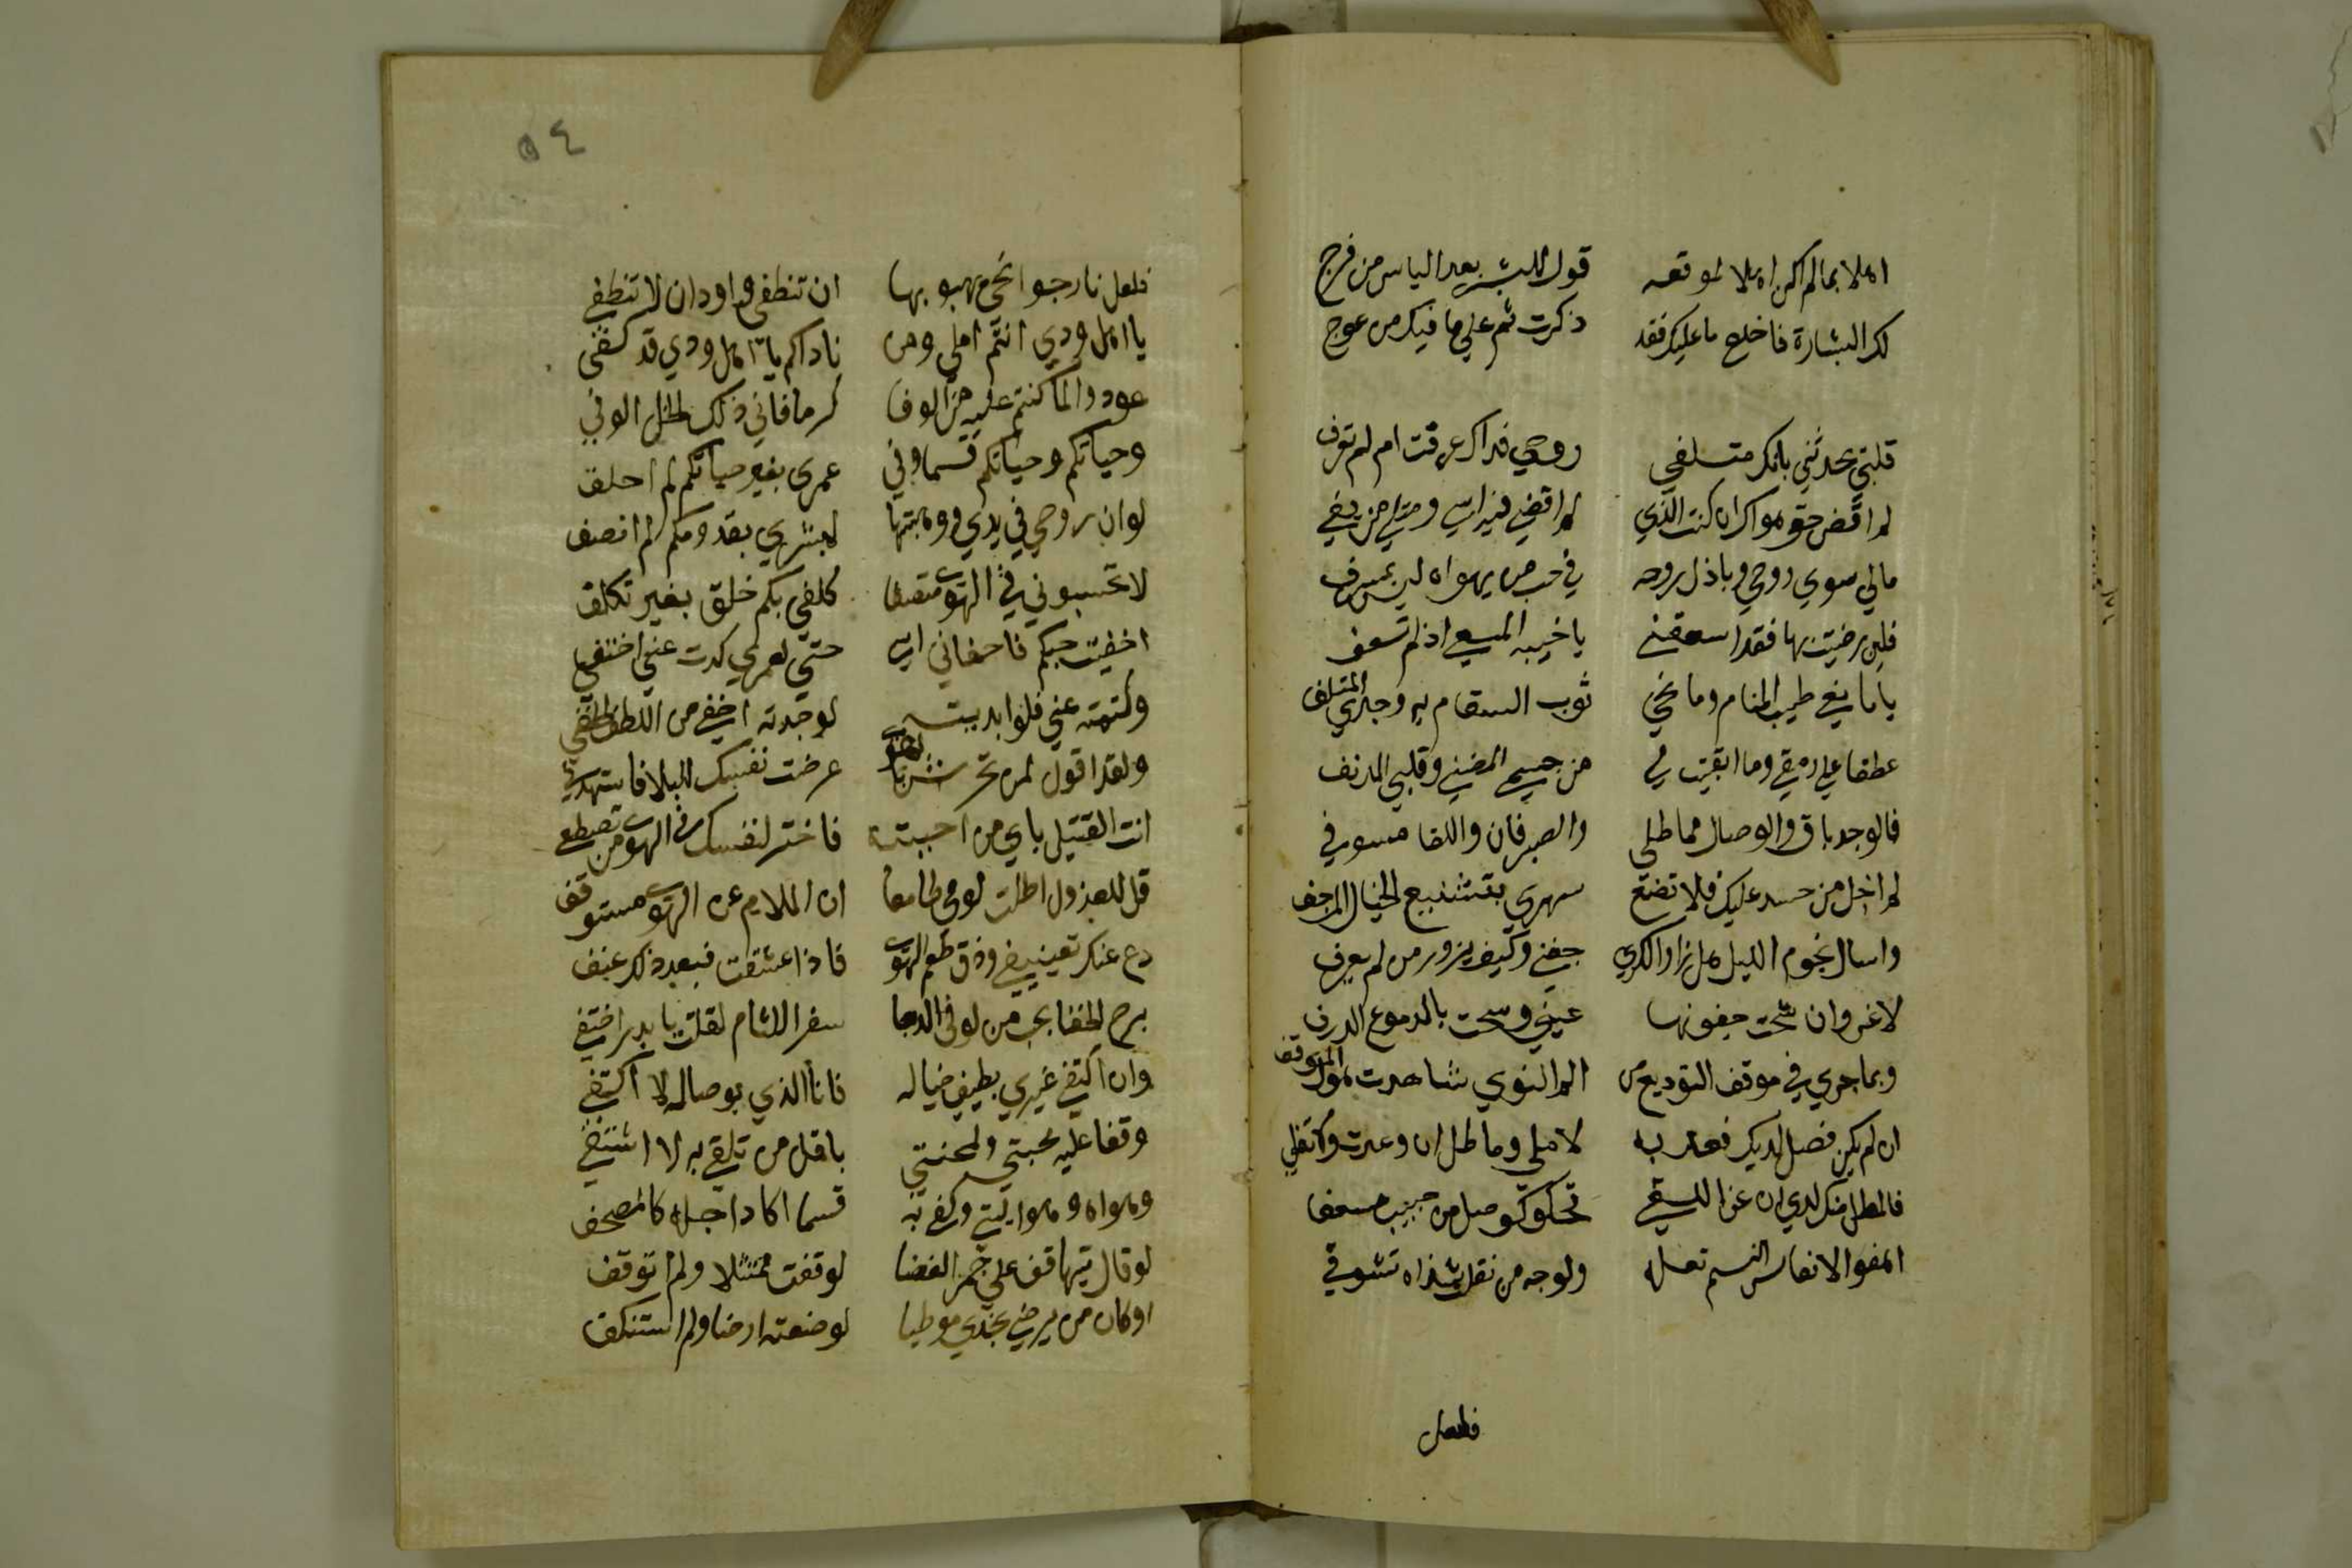 اهلا بمالم اكن اهلا لموقعه قول المبشر بعد الياس من فرج
لك البشارة فاخلع ما عليك فقد ذكرت ثم علي ما فيك من عوج
قلبي يحدثني بانك متلفي روحي فداك عرفت ام لم تعرف
لم اقض حق هواك ان كنت الذي لم اقضي فيه اسي ومثلي من يفي
مالي سوي روحي وباذل روحه في حب من يهواه ليس بمسرف
فلين رضيت بها فقد اسعفتني يا خيبه المسعي اذ لم تسعف
يا مانعي طيب المنام ومانحي ثوب السقام به ووجدي المتلف
عطفا علي رمقي وما ابقيت لي من جسمي المضني وقلبي المدنف
فالوجد باق والوصال مماطلي والصبر فان واللقا مسوفي
لم اخل من حسد عليك فلا تضع سهري بتشنيع الخيال المرجف
واسال نجوم الليل هل زار الكري جفني وكيف يزور من لم يعرف
لا غروان شحت جفونها عيني وسحت بالدموع الدرف
وبما جري في موقف التوديع من الم النوي شاهدت هول الموقف
ان لم يكن فصل لديك فعد به لاملي وماطل ان وعدت ولا تفي
فالمطل منك لدي ان عز اللقي تحلوكوصل من حبيب مسعف
اهفو الانفاس النسيم تعله ولوجه من نقلت شذاه تشوفي
فلعل
٥٤
فلعل نار جوانحي بهبوبها ان تنطفي واود ان لا تنطفي
يا اهل ودي انتم املي ومن ناداكم يا اهل ودي قد كفي
عودوا لما كنتم عليه من الوفا كرما فاني ذلك الخل الوفي
وحياتكم وحياتكم قسما وفي عمري بغير حياتكم لم احلف
لو ان روحي في يدي ووهبتها لمبشري بقدومكم لم انصف
لا تحسبوني في الهوي متصنعا كلفي بكم خلق بغير تكلف
اخفيت حبكم فاخفاني اسي حتي لعمري كدت عني اختفي
وكتمته عني فلو ابديته لوجدته اخفي من اللطف الخفي
ولقد اقول لمن تحرش بالهوي عرضت نفسك للبلا فاستهدف
انت القتيل باي من احببته فاختر لنفسك في الهوي من تصطفي
قل للعذول اطلت لومي طامعا ان الملام عن الهوي مستوقفي
دع عنك تعنيفي وذق طعم الهوي فاذا عشقت فبعد ذلك عنف
برح الخفا بحب من لو في الدجا سفر اللثام لقلت يا بدر اختفي
وان اكتفي غيري بطيف خياله فانا الذي بوصاله لا اكتفي
وقفا عليه محبتي ولمحنتي باقل من تلفي به لا اشتفي
وهواه وهو اليتي وكفي به قسما اكاد اجله كالمصحف
لو قال تيها قف علي جمر الغضا لوقفت ممتثلا ولم اتوقف
او كان من يرضي بخدي موطيا لوضعته ارضا ولم استنكف